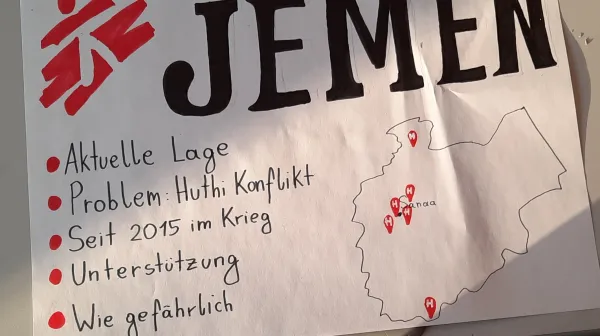 JEMEN
Aktuelle Lage
Problem: Huthi Konflikt
Seit 2015 im Krieg
Unterstützung
Wie gefährlich
H
H
H
Sanaa
H
H
H